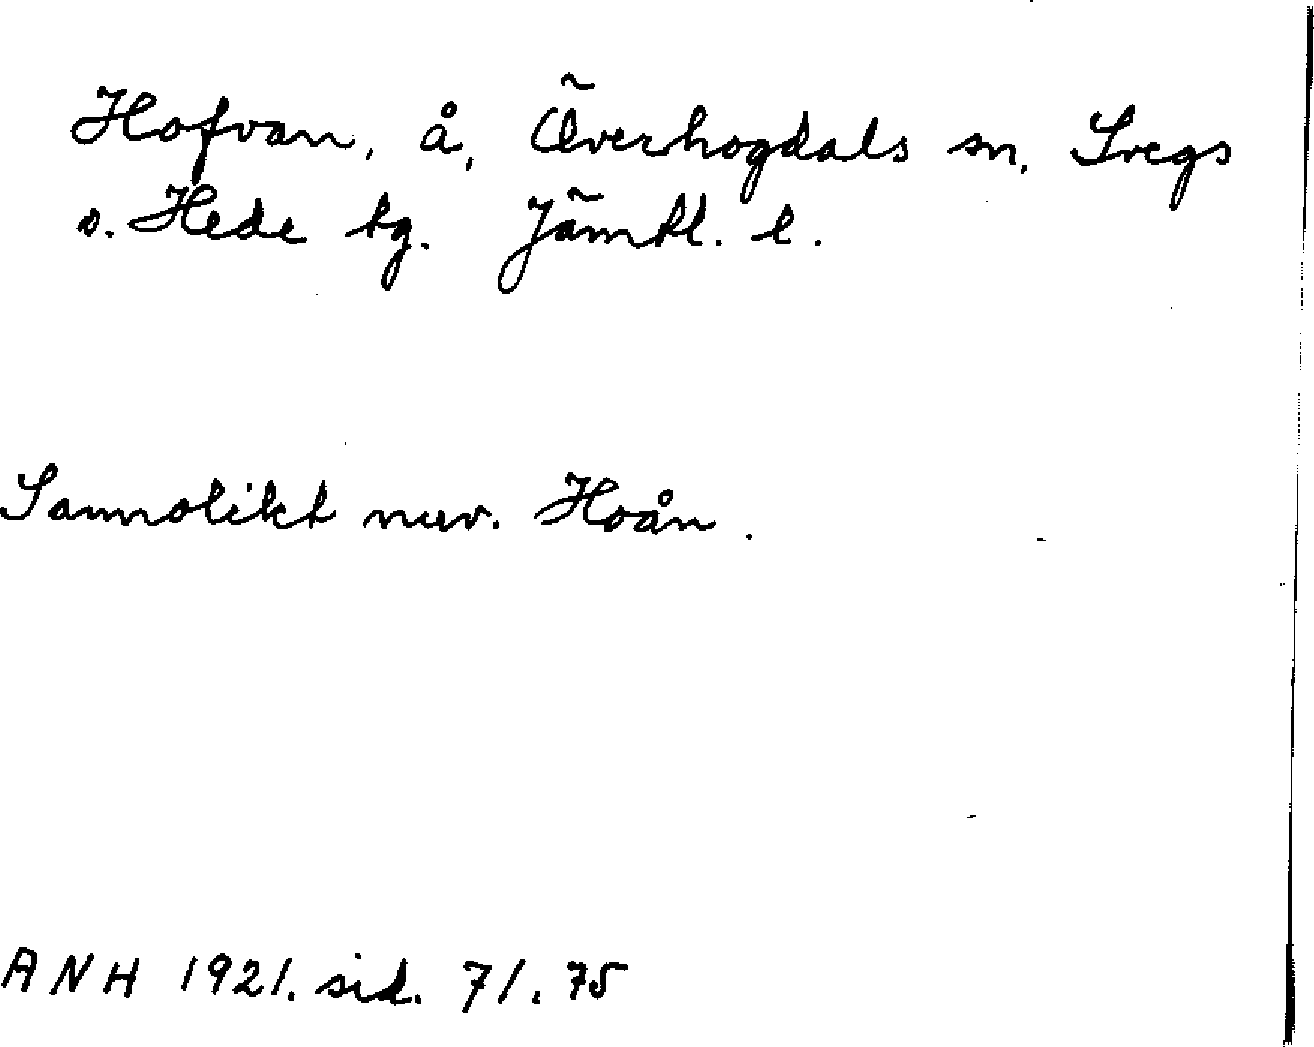 Hofvan, å, Överhogdals sn, Svegs
o. Hede tg. Jämtl. l.
Sannolikt nuv. Hoån.
ANH 1921. sid. 71. 75